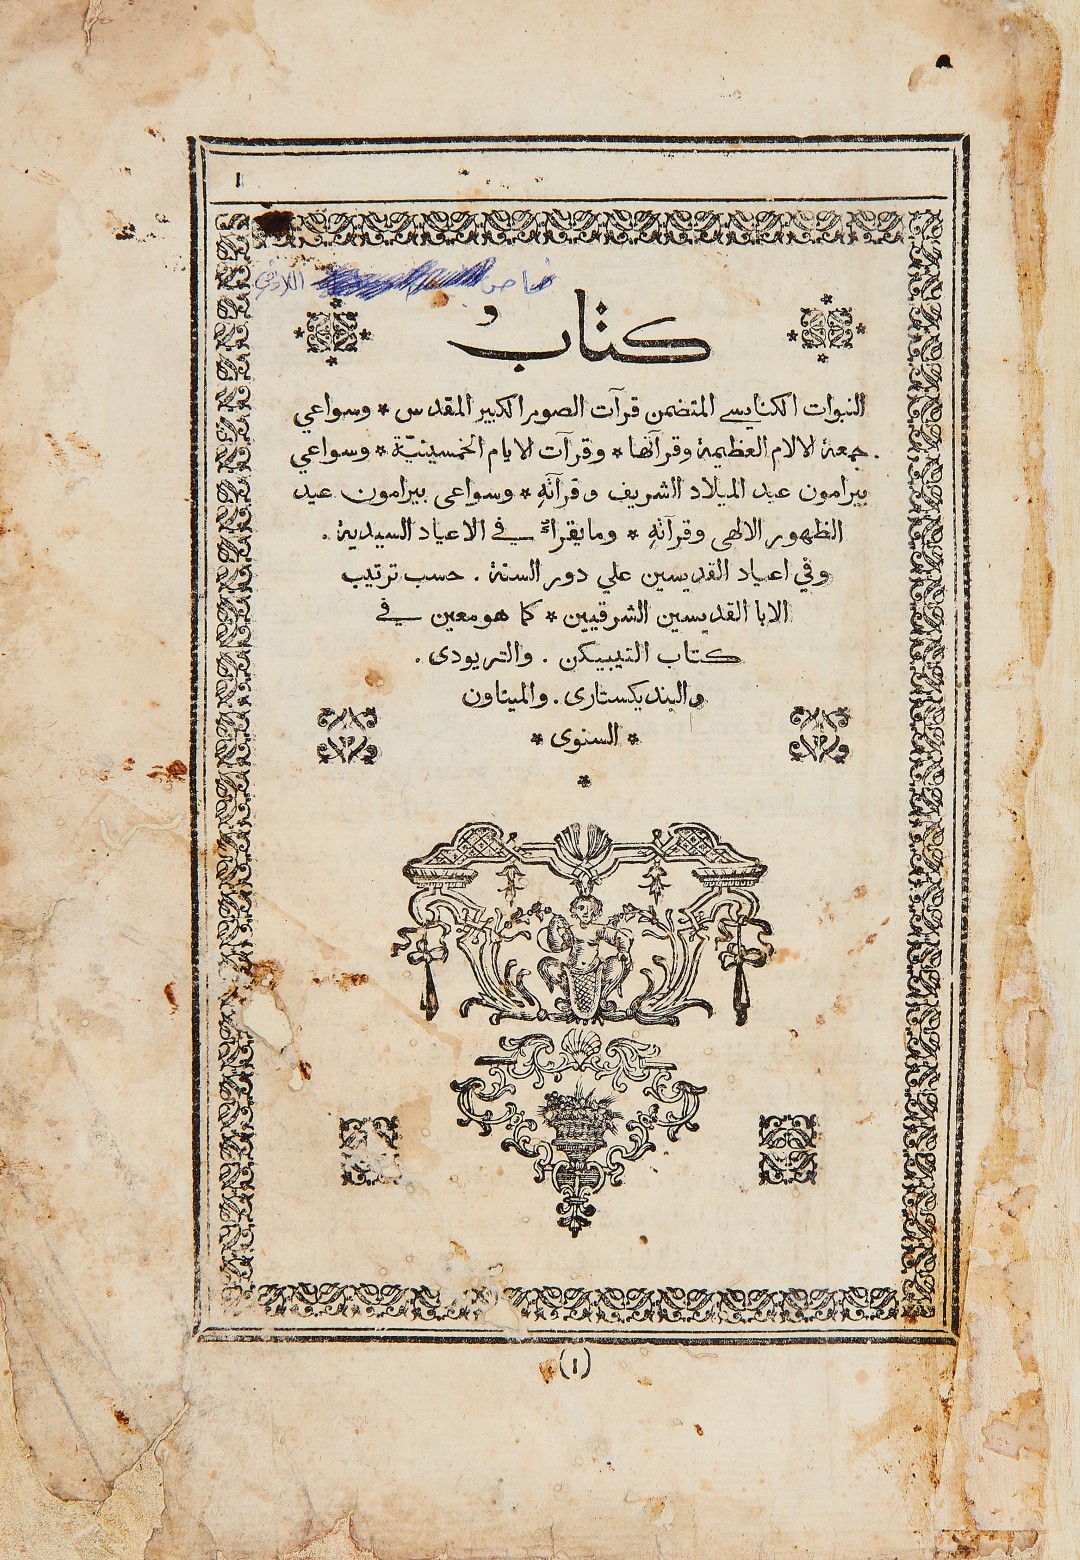 ١
خاص
كتاب
النبوات الكنايسي المتضمن قرآت الصوم الكبير المقدس * وسواعي
جمعة الالام العظيمة وقرآتها * وقرآت الايام الخمسينيّة * وسواعي
بيرامون عيد الميلاد الشريف وقرآتهِ * وسواعى بيرامون عيد
الظهور الالهى وقرآتهِ * وما يقراءُ في الاعياد السيدية .
وفي اعياد القديسين علي دور السنة . حسب ترتيب
الابا القديسين الشرقيين * كما هو معين في
كتاب التيبيكن . والتريودى .
والبنديكستارى . والميناون
* السنوى *
*
(١)